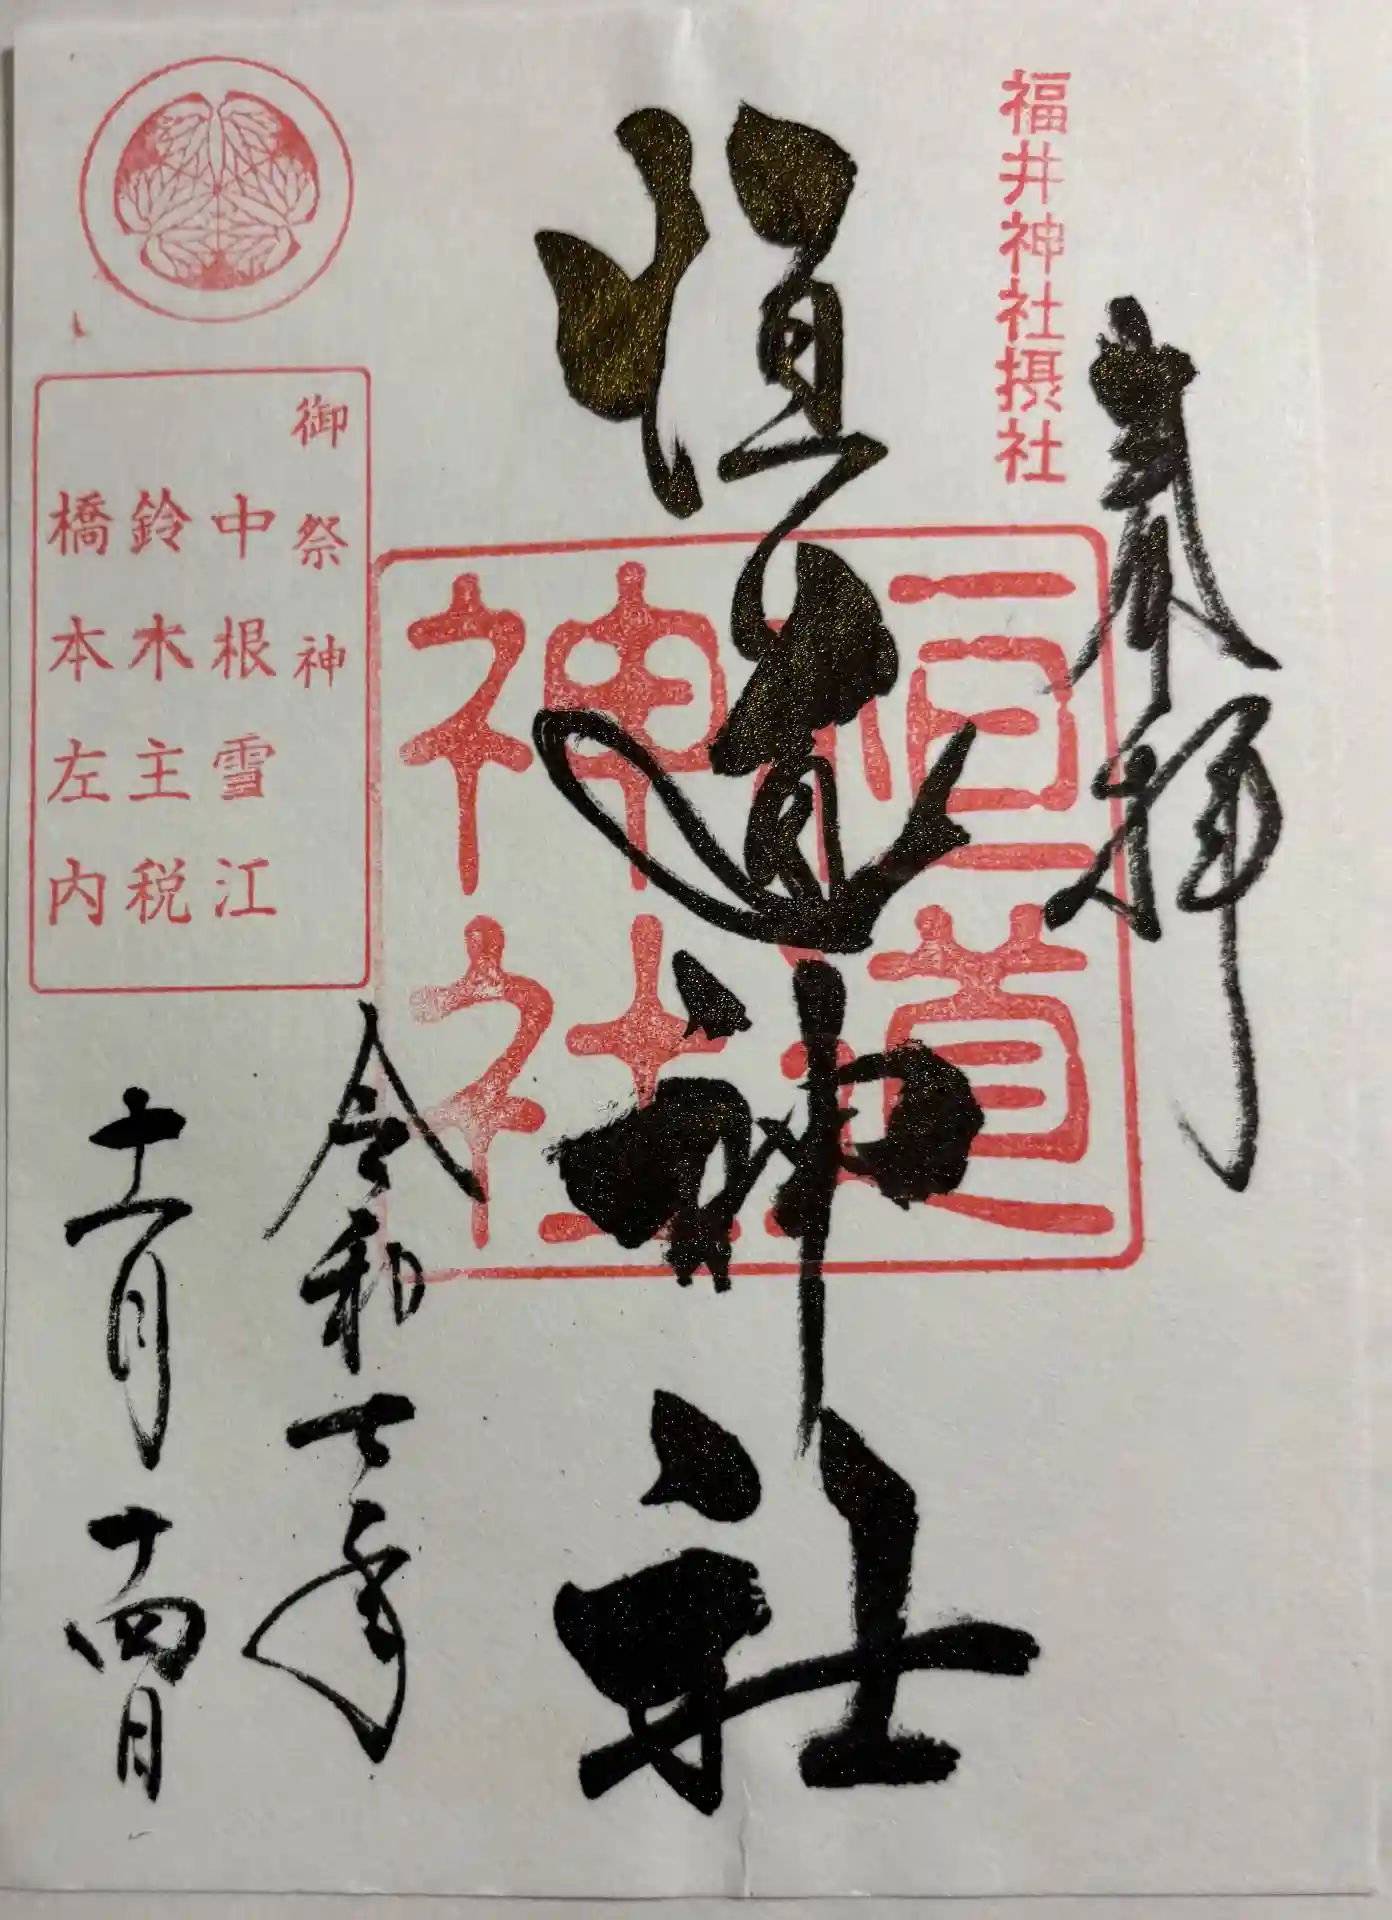 奉拝
福井神社摂社
恒道神社
恒道
神社
御祭神
中根雪江
鈴木主税
橋本左内
令和七年
十一月十四日